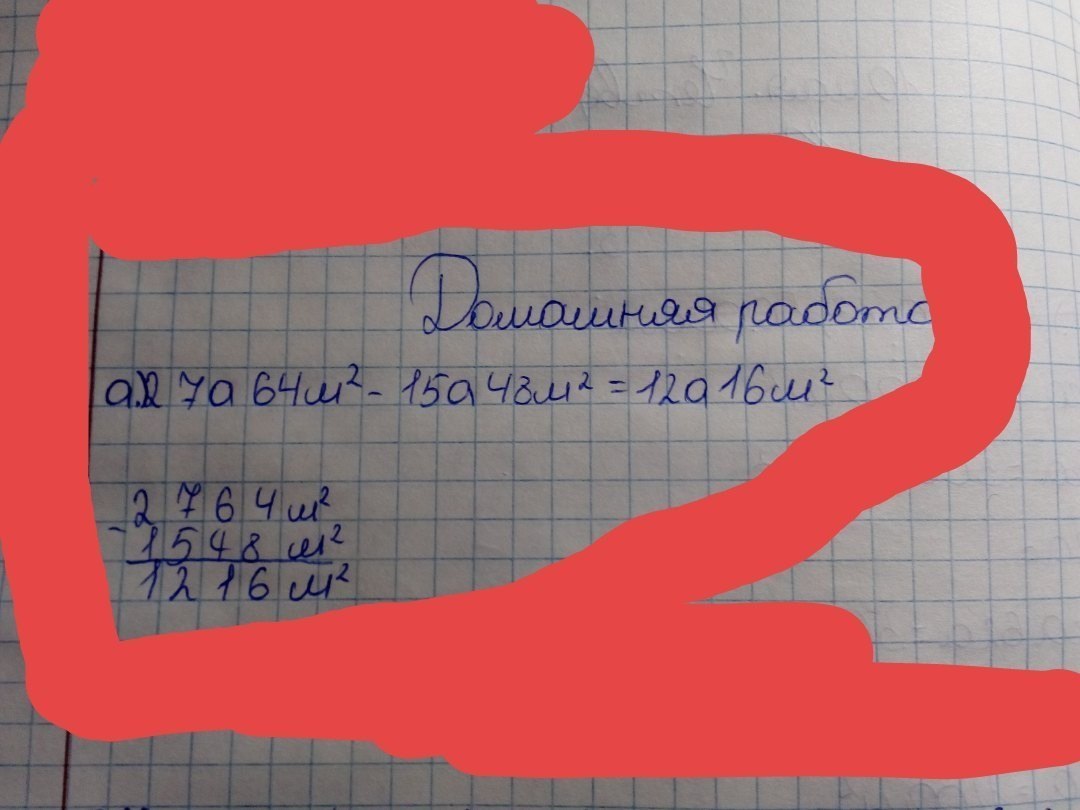 Домашняя работа
а) 27а 64м² - 15а 48м² = 12а 16м²
- 2 7 6 4 м²
1 5 4 8 м²
1 2 1 6 м²